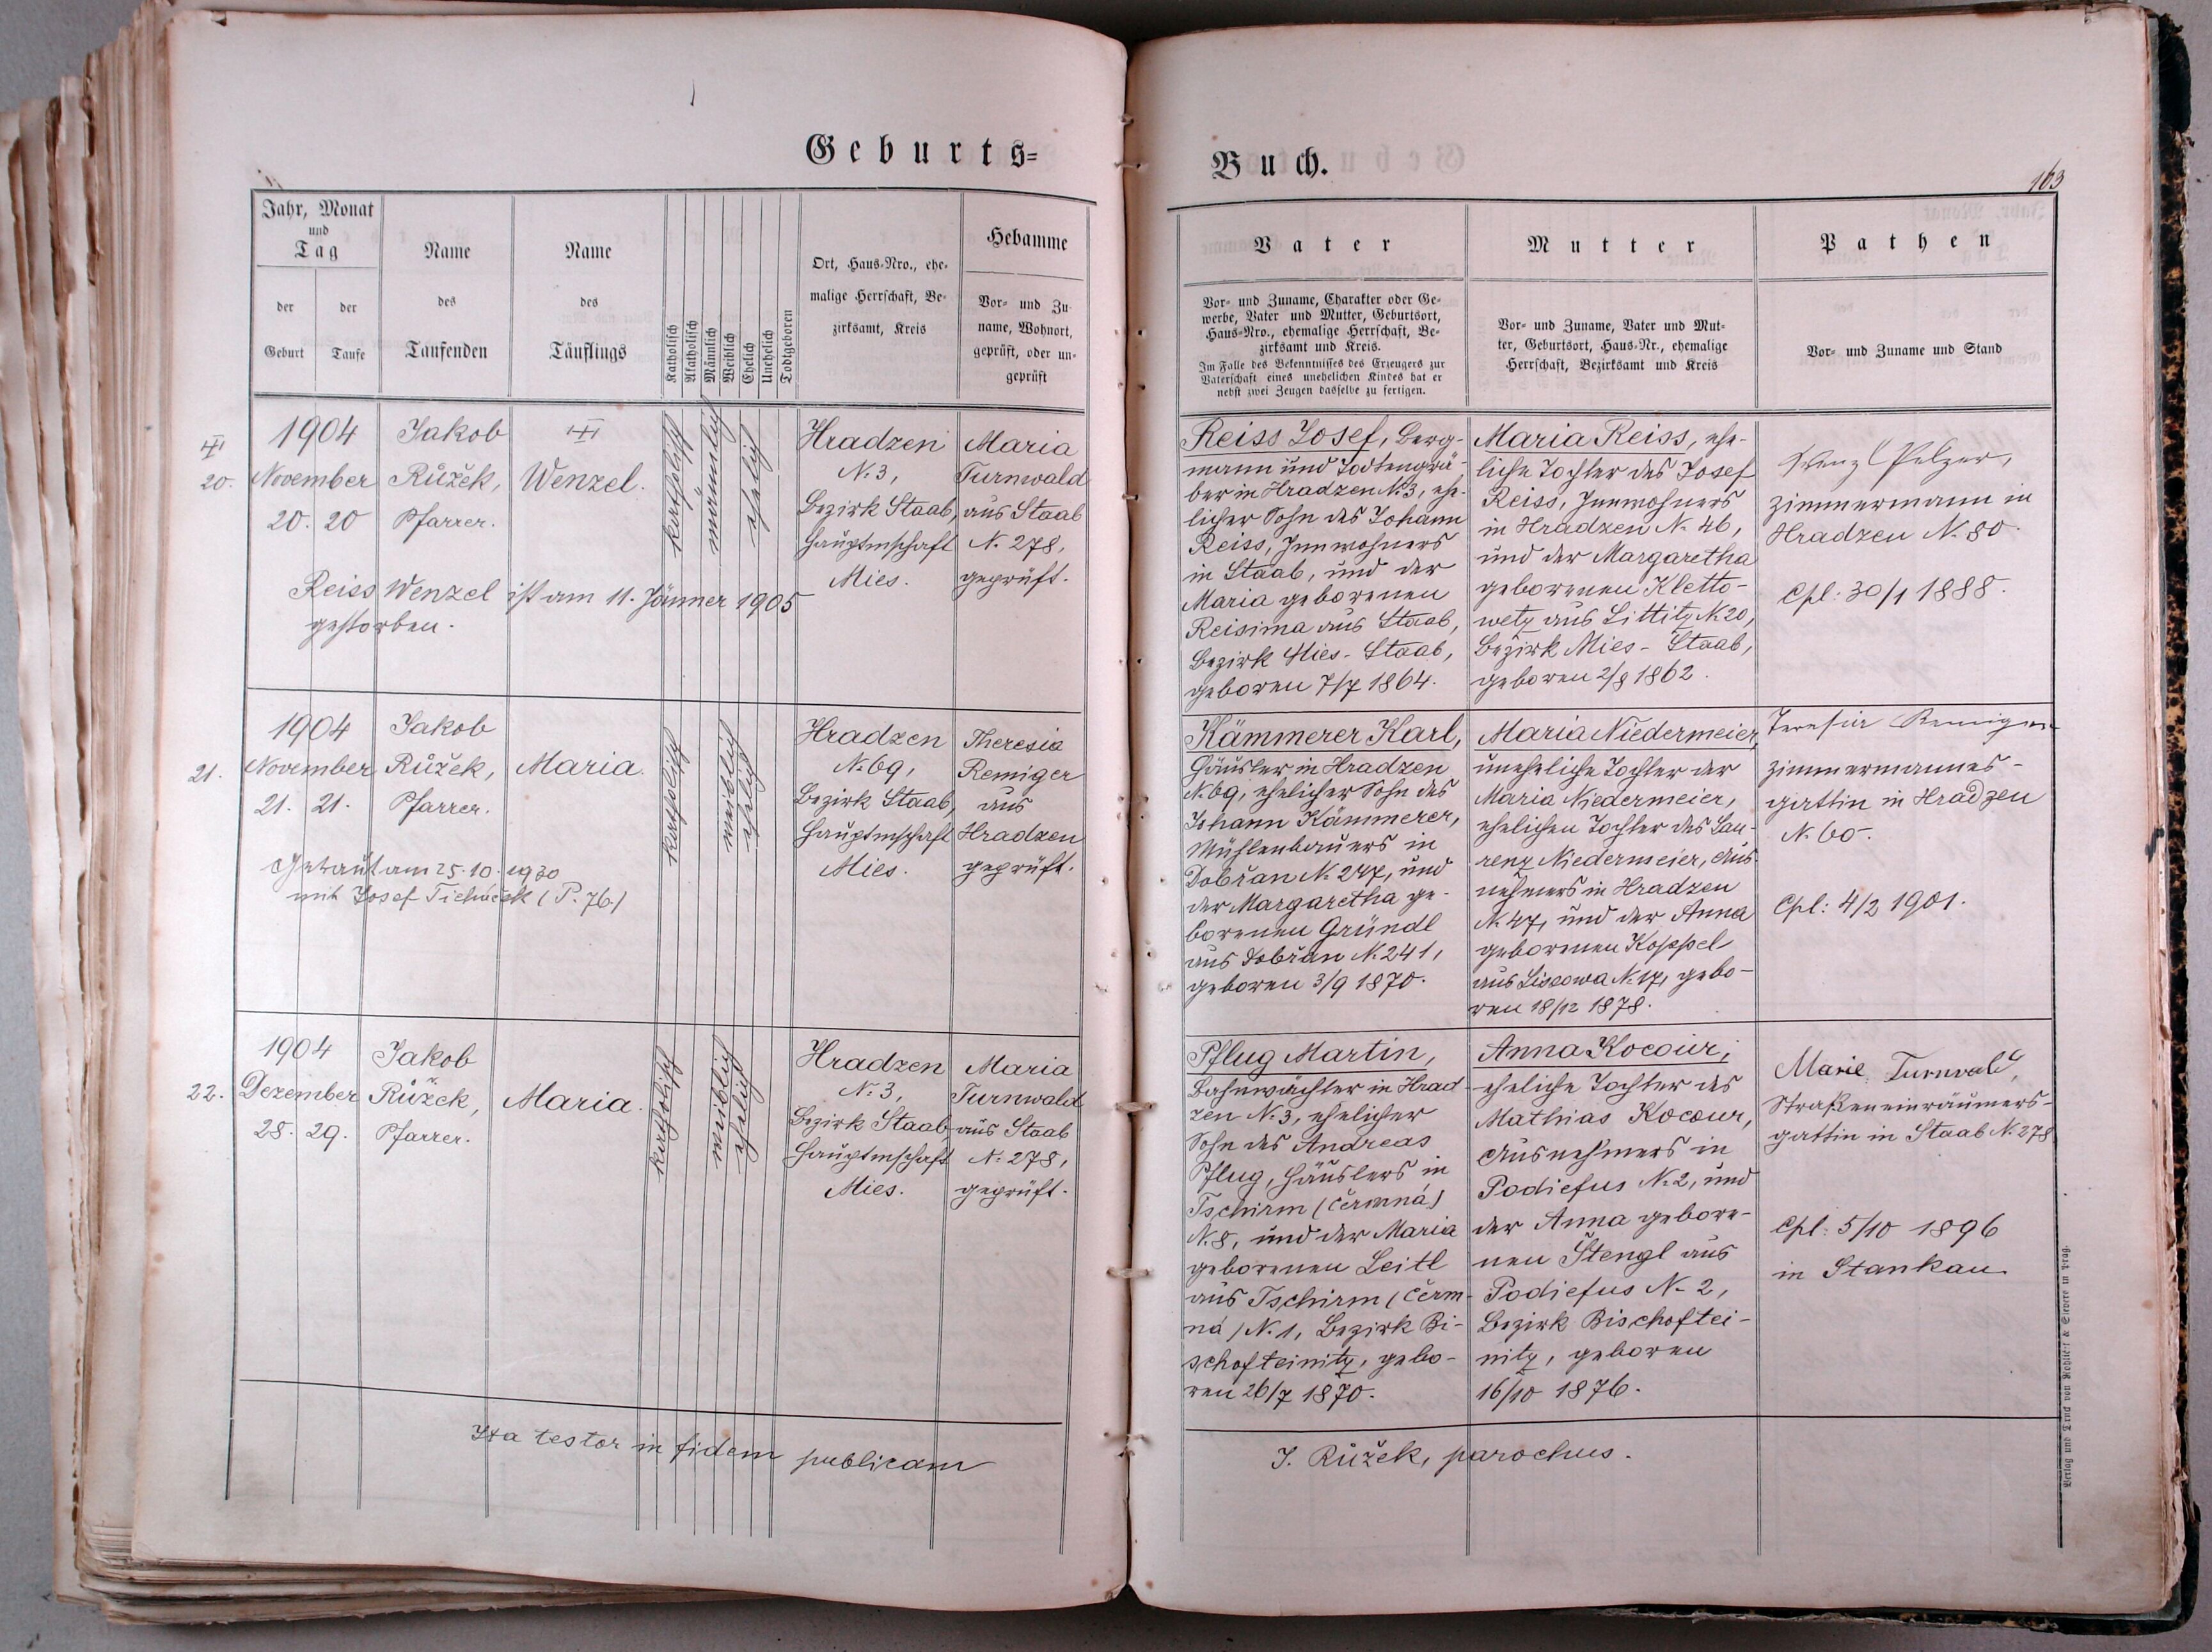 Geburts=
Jahr, Monat
und
Tag
der
Geburt
der
Taufe
Name
des
Taufenden
Name
des
Täuflings
Katholisch
Akatholisch
Männlich
Weiblich
Ehelich
Unehelich
Todtgeboren
Ort, Haus-Nro., ehe-
malige Herrschaft, Be-
zirksamt, Kreis
Hebamme
Vor- und Zu-
name, Wohnort,
geprüft, oder un-
geprüft
20.
1904
November
20. 20
Jakob
Růžek,
Pfarrer.
Wenzel.
katholisch
männlich
ehelich
Hradzen
N. 3,
Bezirk Staab,
Hauptmschaft
Mies.
Maria
Turnwald
aus Staab
N. 278,
geprüft.
Reiss Wenzel ist am 11. Jänner 1905
gestorben.
21.
1904
November
21. 21.
Jakob
Růžek,
Pfarrer.
Maria.
katholisch
weiblich
ehelich
Hradzen
N. 69,
Bezirk Staab,
Hauptmschaft
Mies.
Theresia
Remiger
aus
Hradzen
geprüft.
Getraut am 25. 10. 1930
mit Josef (P. 76)
22.
1904
Dezember
28. 29.
Jakob
Růžek,
Pfarrer.
Maria.
katholisch
weiblich
ehelich
Hradzen
N. 3,
Bezirk Staab
Hauptmschaft
Mies.
Maria
Turnwald
aus Staab
N. 278,
geprüft.
Ita testor in fidem publicam
Buch.
163
Vater
Vor- und Zuname, Charakter oder Ge-
werbe, Vater und Mutter, Geburtsort,
Haus-Nro., ehemalige Herrschaft, Be-
zirksamt und Kreis.
Im Falle des Bekenntnisses des Erzeugers zur
Vaterschaft eines unehelichen Kindes hat er
nebst zwei Zeugen dasselbe zu fertigen.
Mutter
Vor- und Zuname, Vater und Mut-
ter, Geburtsort, Haus-Nr., ehemalige
Herrschaft, Bezirksamt und Kreis
Pathen
Vor- und Zuname und Stand
Reiss Josef, Berg-
mann und Todtengrä-
ber in Hradzen N. 3, ehe-
licher Sohn des Johann
Reiss, Innwohners
in Staab, und der
Maria geborenen
Reisima aus Staab,
Bezirk Mies-Staab,
geboren 7/7 1864.
Maria Reiss, ehe-
liche Tochter des Josef
Reiss, Innwohners
in Hradzen N. 46,
und der Margaretha
geborenen Kletto-
wetz aus Littitz N. 20,
Bezirk Mies-Staab,
geboren 2/8 1862.
Wenzl Pelzer,
Zimmermann in
Hradzen N. 80.
Cpl: 30/1 1888.
Kämmerer Karl,
Häusler in Hradzen
N. 69, ehelicher Sohn des
Johann Kämmerer,
Mühlenbauers in
Dobřan N. 247, und
der Margaretha ge-
borenen Gründl
aus Dobřan N. 241,
geboren 3/9 1870.
Maria Niedermeier,
uneheliche Tochter der
Maria Niedermeier,
ehelichen Tochter des Lau-
renz Niedermeier, Aus-
nehmers in Hradzen
N. 47, und der Anna
geborenen Koppel
aus Liscowa N. 17, gebo-
ren 18/12 1878.
Teresia Remiger
Zimmermannes-
gattin in Hradzen
N. 60.
Cpl: 4/2 1901.
Pflug Martin,
Bahnwächter in Hrad-
zen N. 3, ehelicher
Sohn des Andreas
Pflug, Häuslers in
Tschirm (Čermná)
N. 8, und der Maria
geborenen Leitl
aus Tschirm (Čerm-
ná) N. 1, Bezirk Bi-
schofteinitz, gebo-
ren 26/7 1870.
Anna Kocour,
eheliche Tochter des
Mathias Kocour,
Ausnehmers in
Podiefus N. 2, und
der Anna gebore-
nen Stengl aus
Podiefus N. 2,
Bezirk Bischoftei-
nitz, geboren
16/10 1876.
Marie Turnwald,
Straßeneinräumers-
gattin in Staab N. 278
Cpl: 5/10 1896
in Stankau
J. Růžek, parochus.
Verlag und Druck von Rohliček & Sievers in Prag.